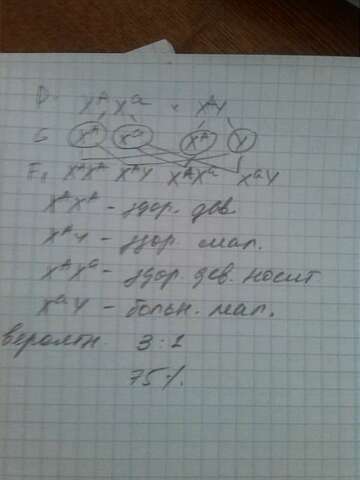 P: XᴬXᵃ × XᴬY
G Xᴬ Xᵃ Xᴬ Y
F₁ XᴬXᴬ XᴬY XᴬXᵃ XᵃY
XᴬXᴬ - здор. дев
XᴬY - здор. мал.
XᴬXᵃ - здор. дев. носит
XᵃY - больн. мал.
вероятн. 3:1
75%.